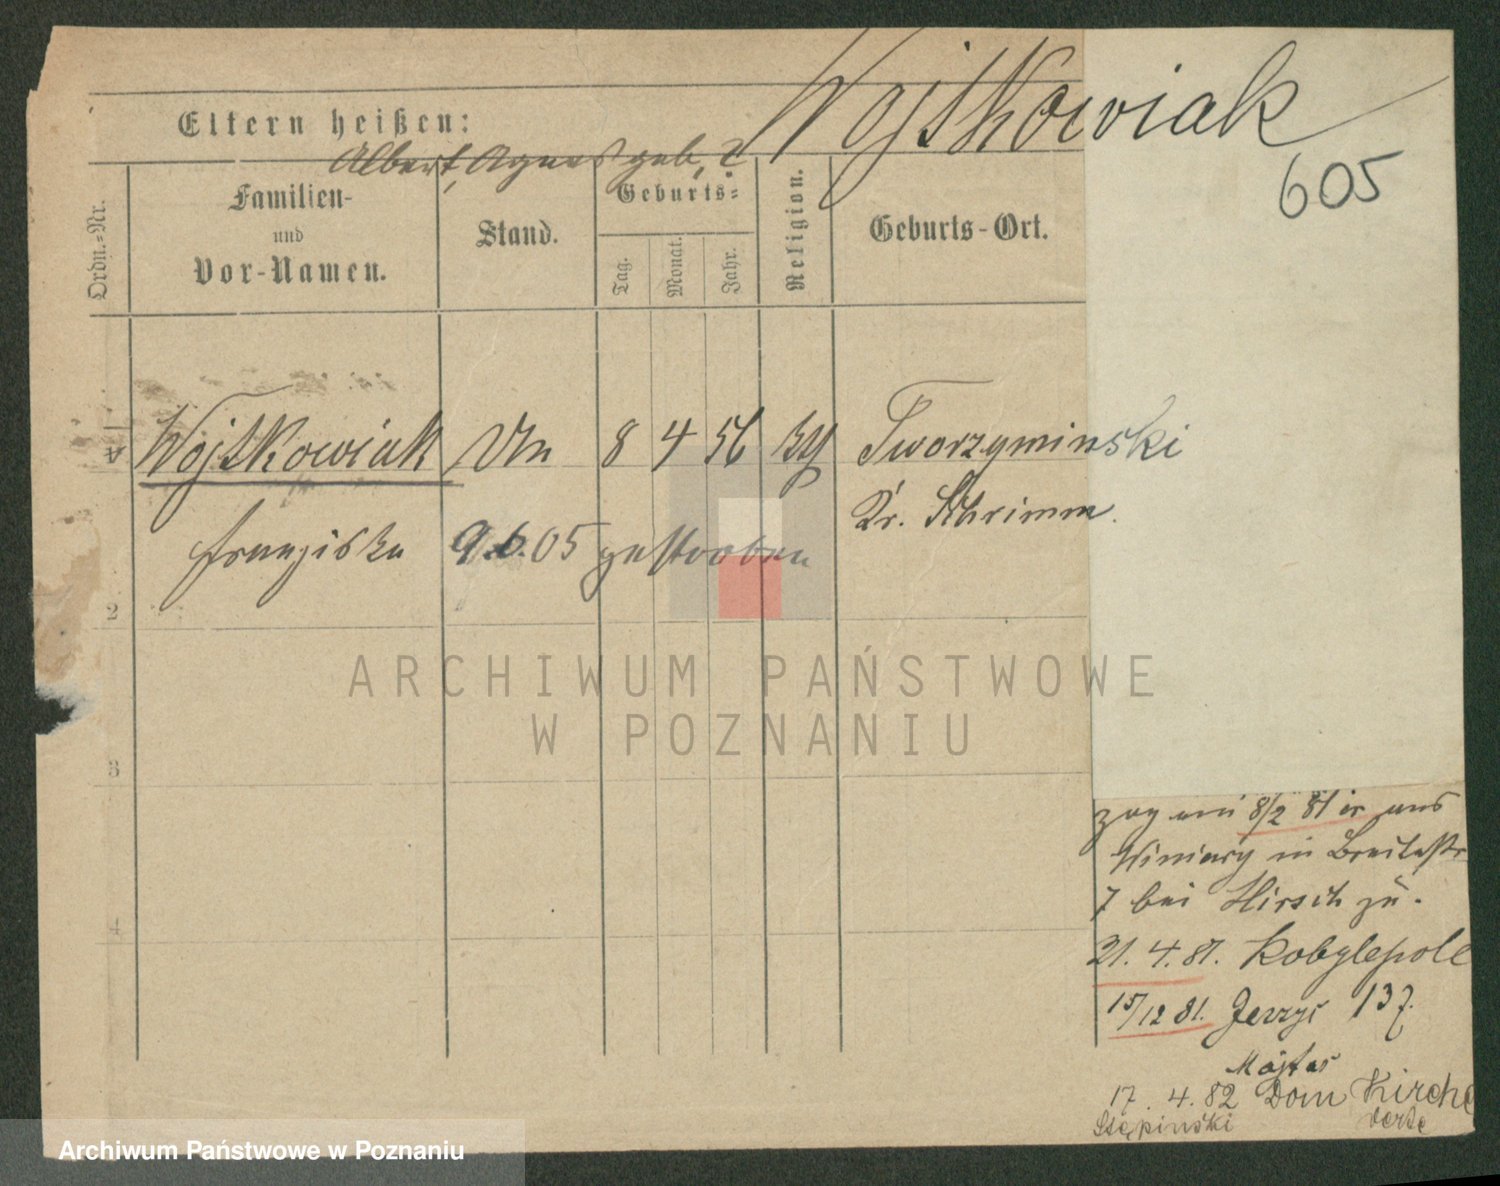 Wojtkowiak
605
Eltern heißen:
Albert, Agnes geb. ?
Ordn.-Nr.
Familien-
und
Vor-Namen.
Stand.
Geburts-
Tag.
Monat.
Jahr.
Religion.
Geburts-Ort.
Wojtkowiak 8 4 56 Tworzyminski
Kr. Schrimm.
Franziska 9.6.05 gestorben
2
3
4
ARCHIWUM PAŃSTWOWE
W POZNANIU
zog am 8/2 81 er aus
Winiary in Breitestr
7 bei Hirsch zu.
21. 4. 81. Kobylepole
15/12 81. Jerzyc 137.
17. 4. 82 Dom Kirche
Stępinski
Archiwum Państwowe w Poznaniu